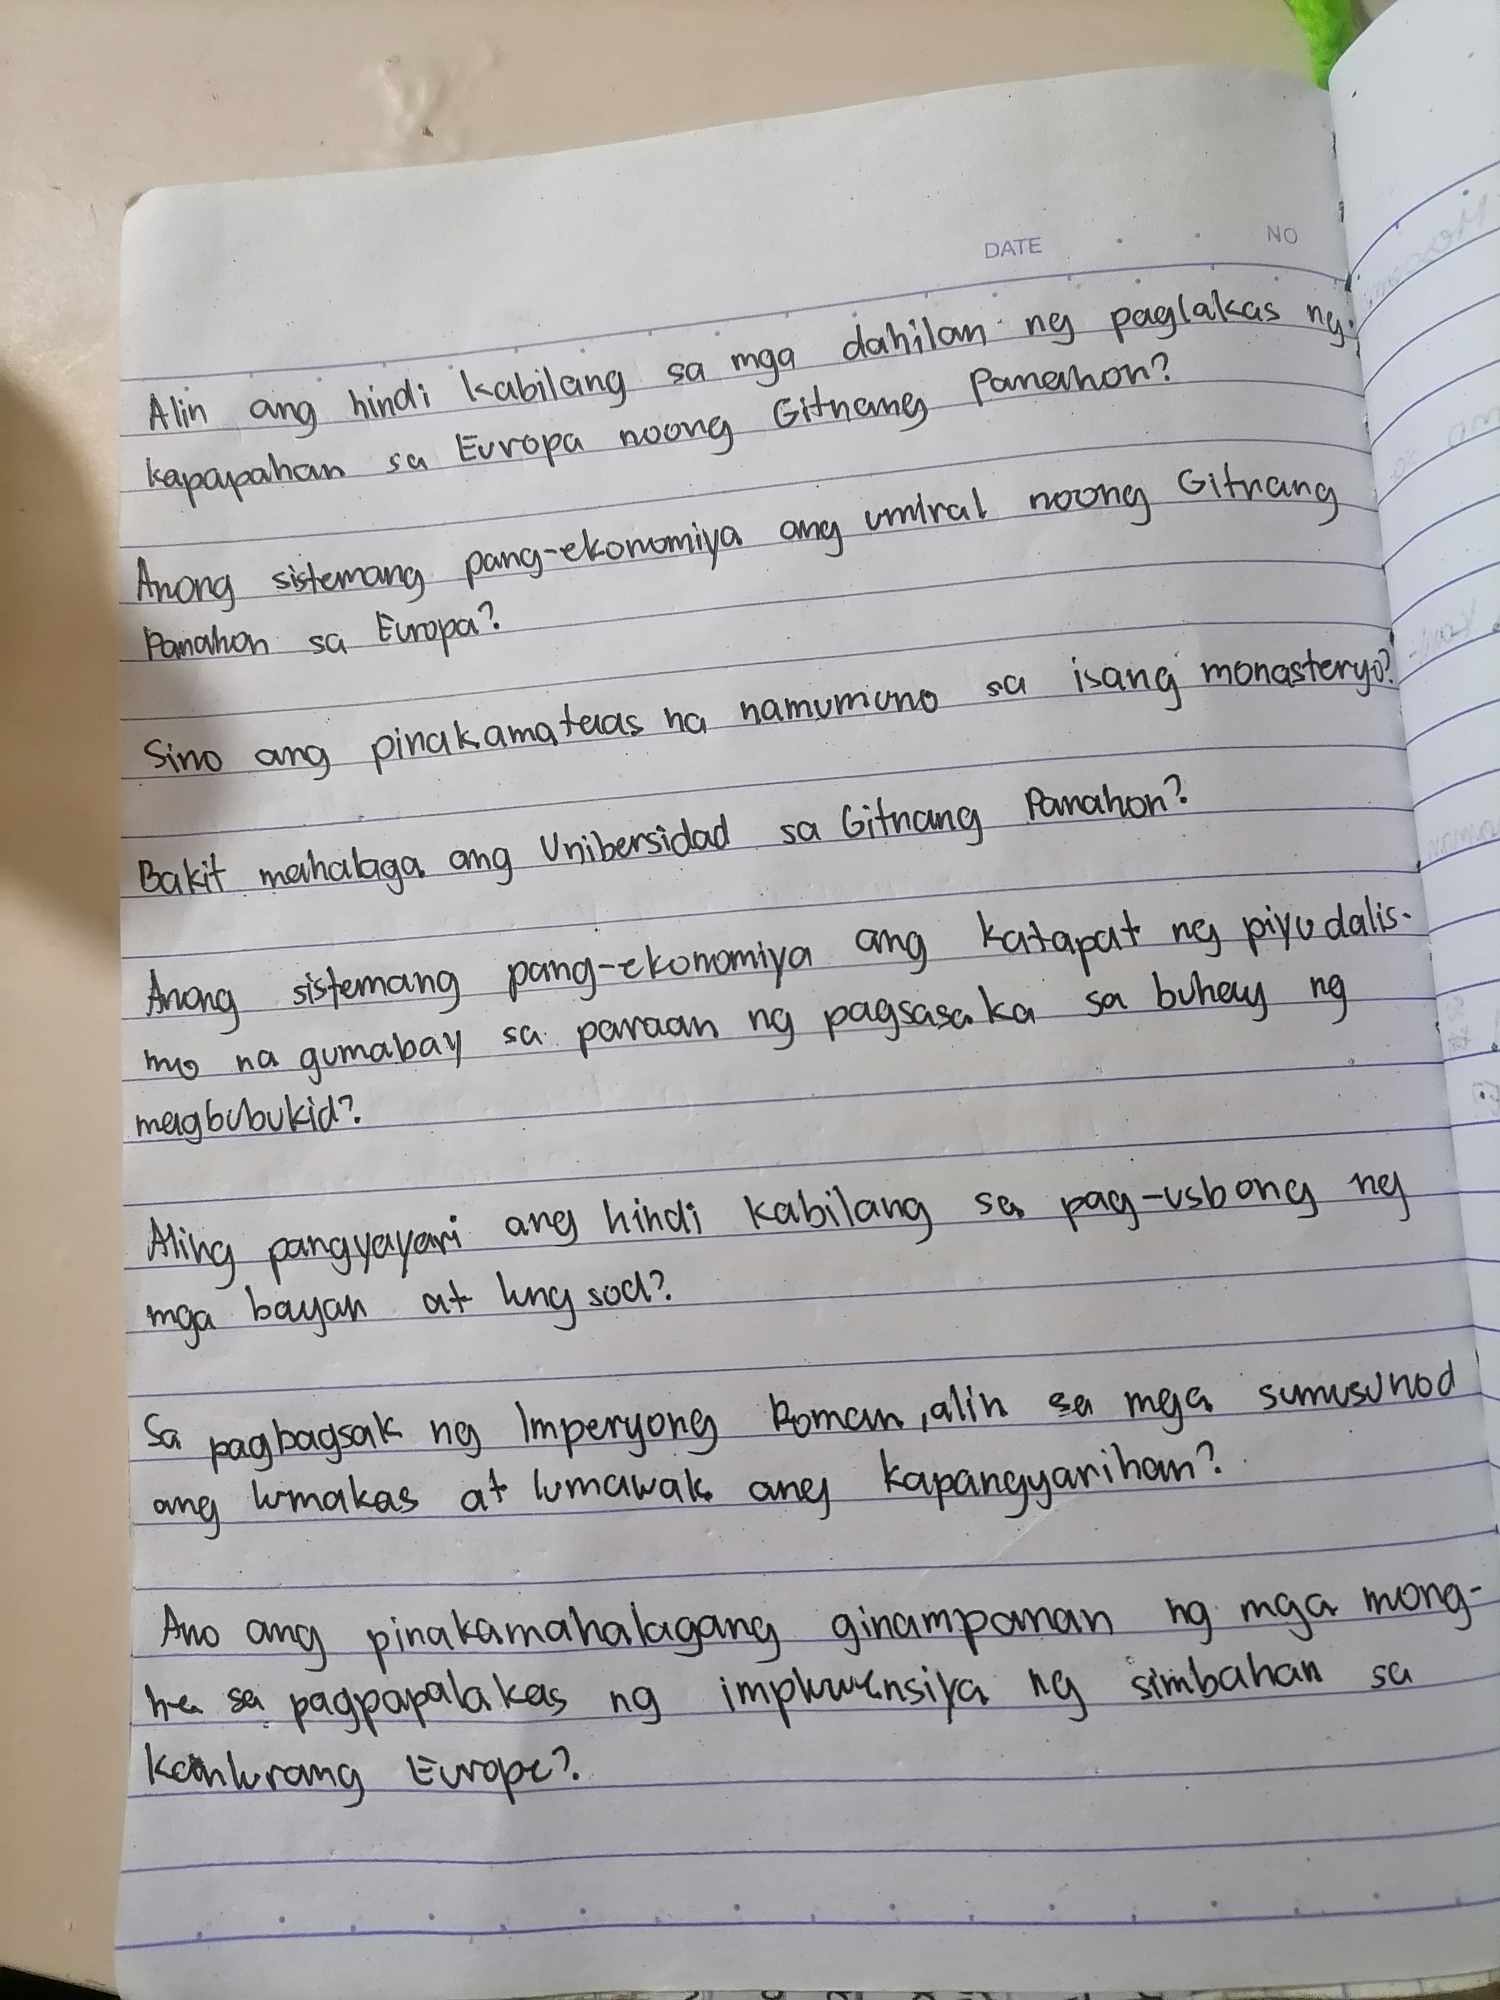 DATE NO
Alin ang hindi kabilang sa mga dahilan ng paglakas ng
kapapahan sa Europa noong Gitnang Panahon?
Anong sistemang pang-ekonomiya ang umiral noong Gitnang
Panahon sa Europa?
Sino ang pinakamataas na namumuno sa isang monasteryo?
Bakit mahalaga ang Unibersidad sa Gitnang Panahon?
Anong sistemang pang-ekonomiya ang katapat ng piyudalis-
mo na gumabay sa paraan ng pagsasaka sa buhay ng
magbubukid?
Aling pangyayari ang hindi kabilang sa pag-usbong ng
mga bayan at lungsod?
Sa pagbagsak ng Imperyong Roman, alin sa mga sumusunod
ang lumakas at lumawak ang kapangyarihan?
Ano ang pinakamahalagang ginampanan ng mga mong-
he sa pagpapalakas ng impluwensiya ng simbahan sa
kanlurang Europe?